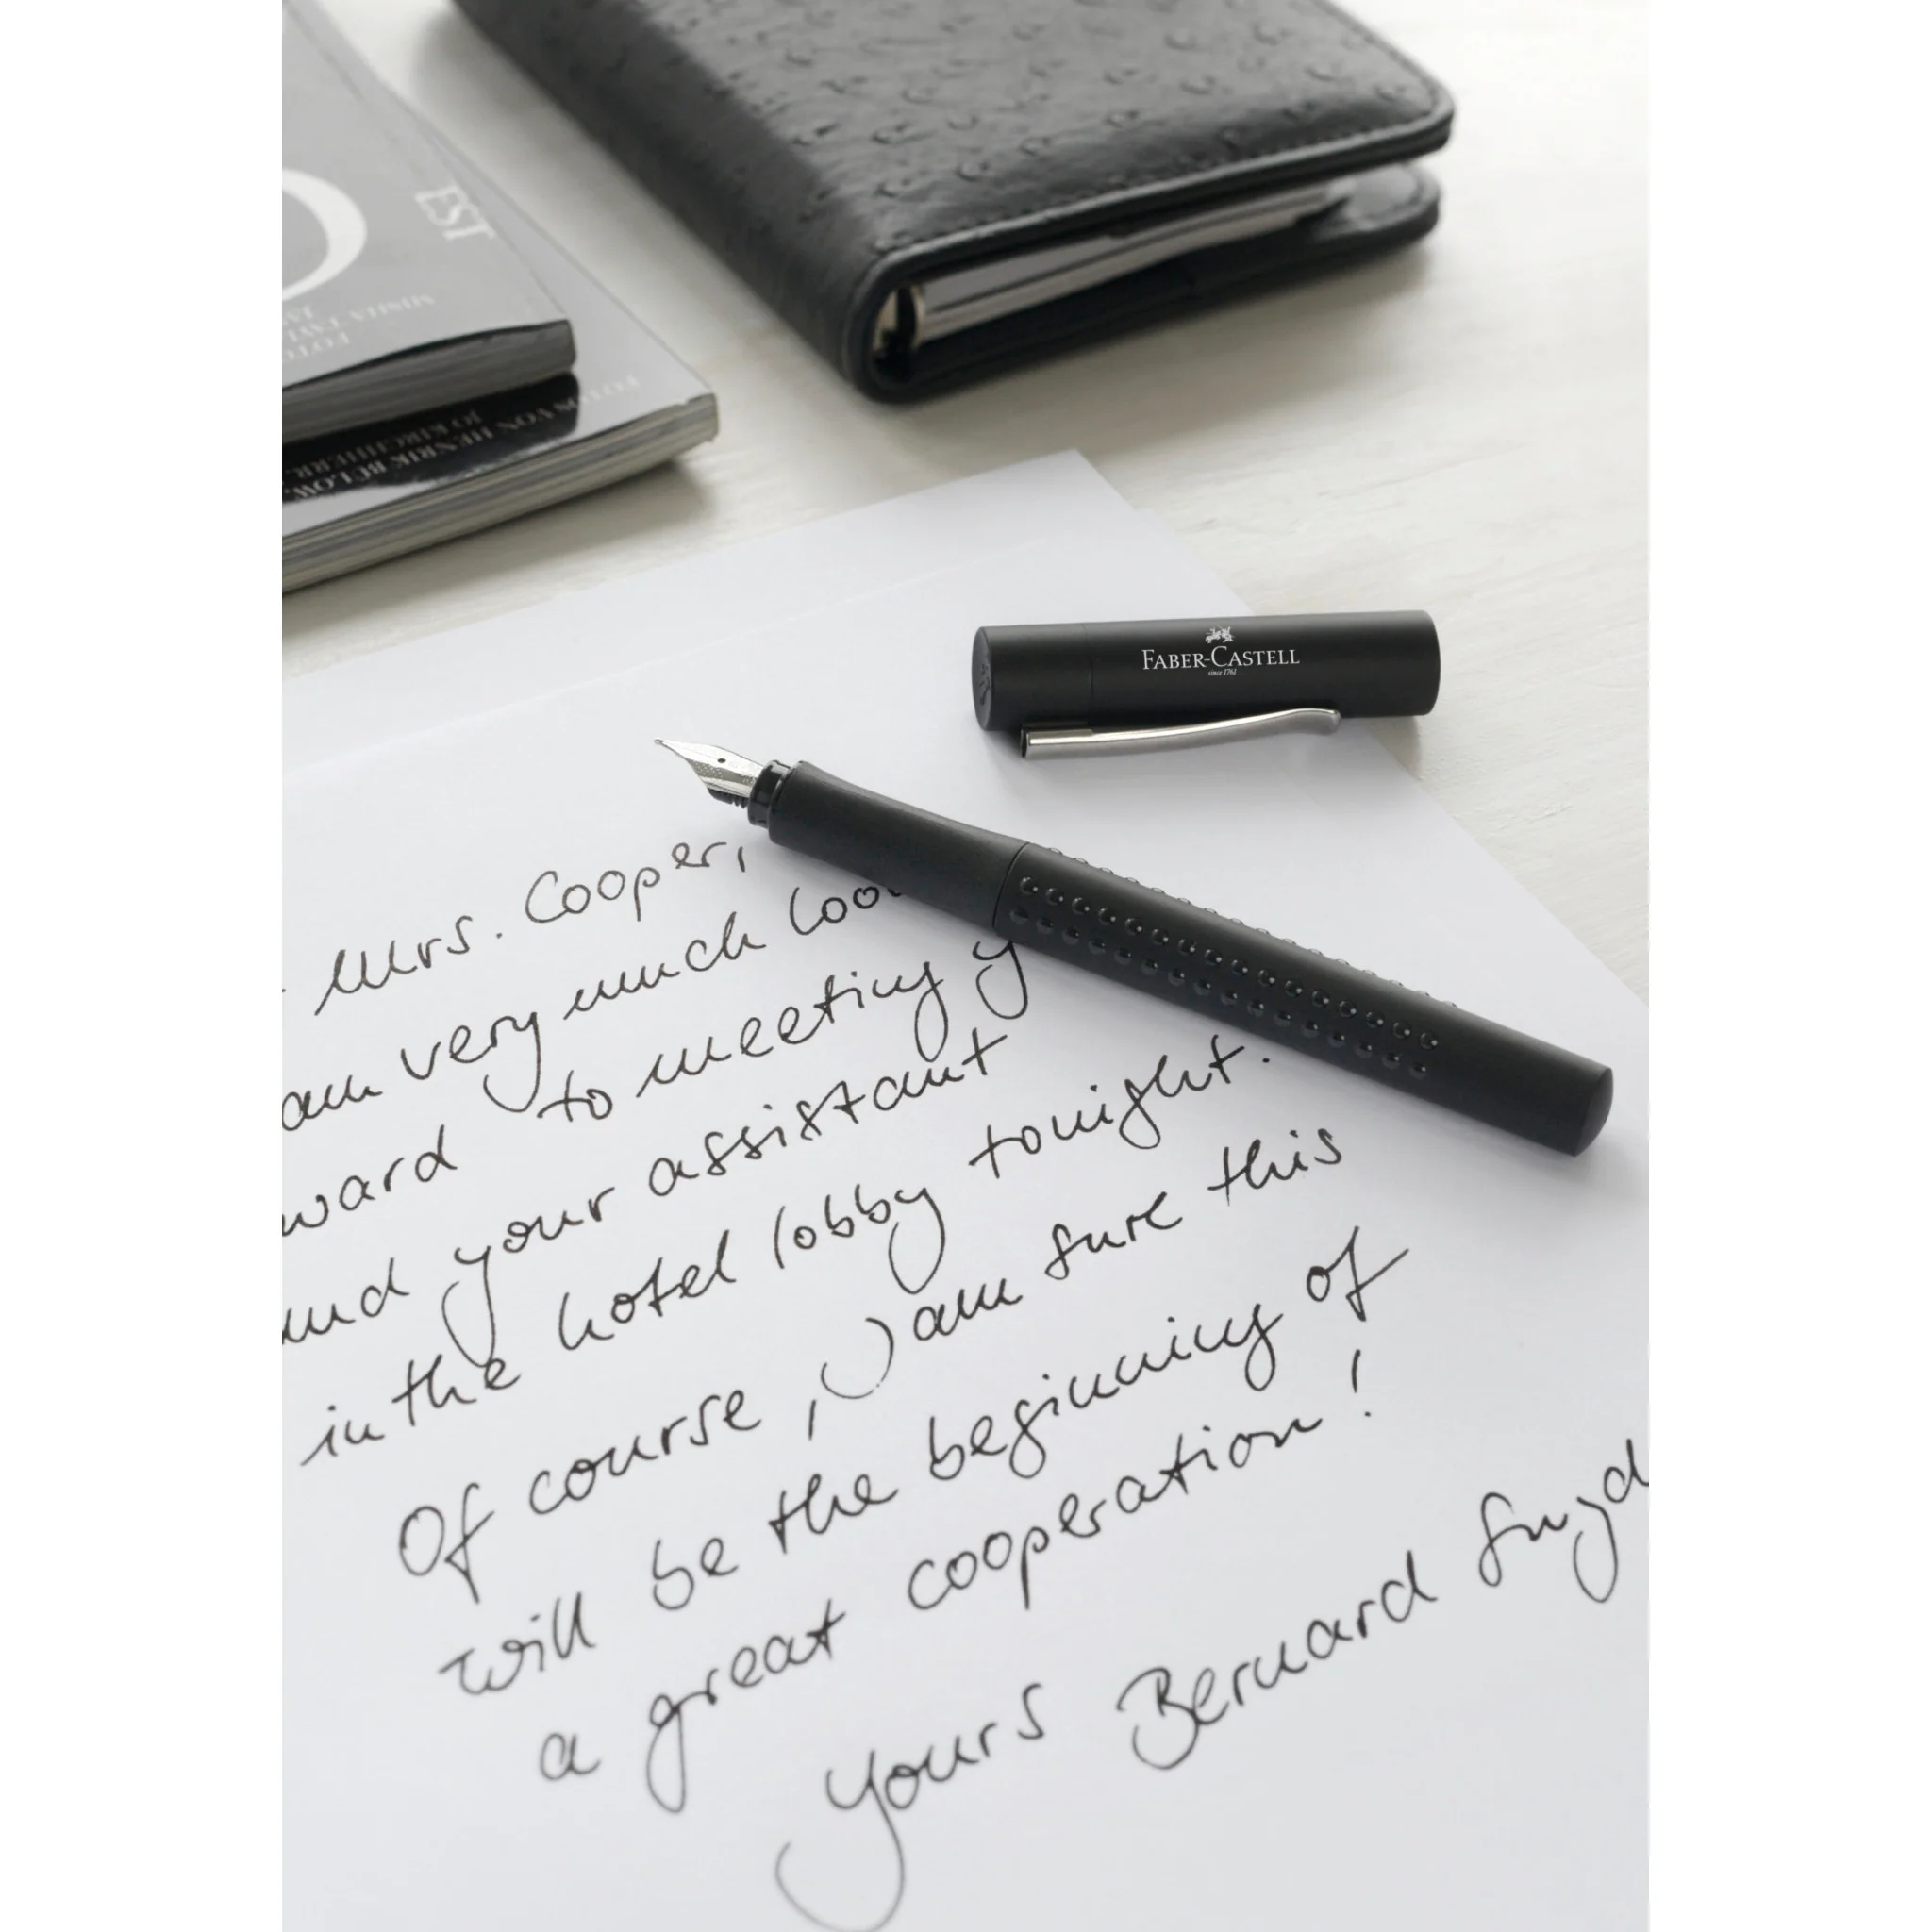 EST
FOTOS VON HENRIK BÜLOW,
JO KIRCHHERR,
FABER-CASTELL
since 1761
Mrs. Cooper,
am very much loo
ward to meeting y
and your assistant
in the hotel lobby tonight.
Of course, I am sure this
will be the beginning of
a great cooperation!
yours Bernard